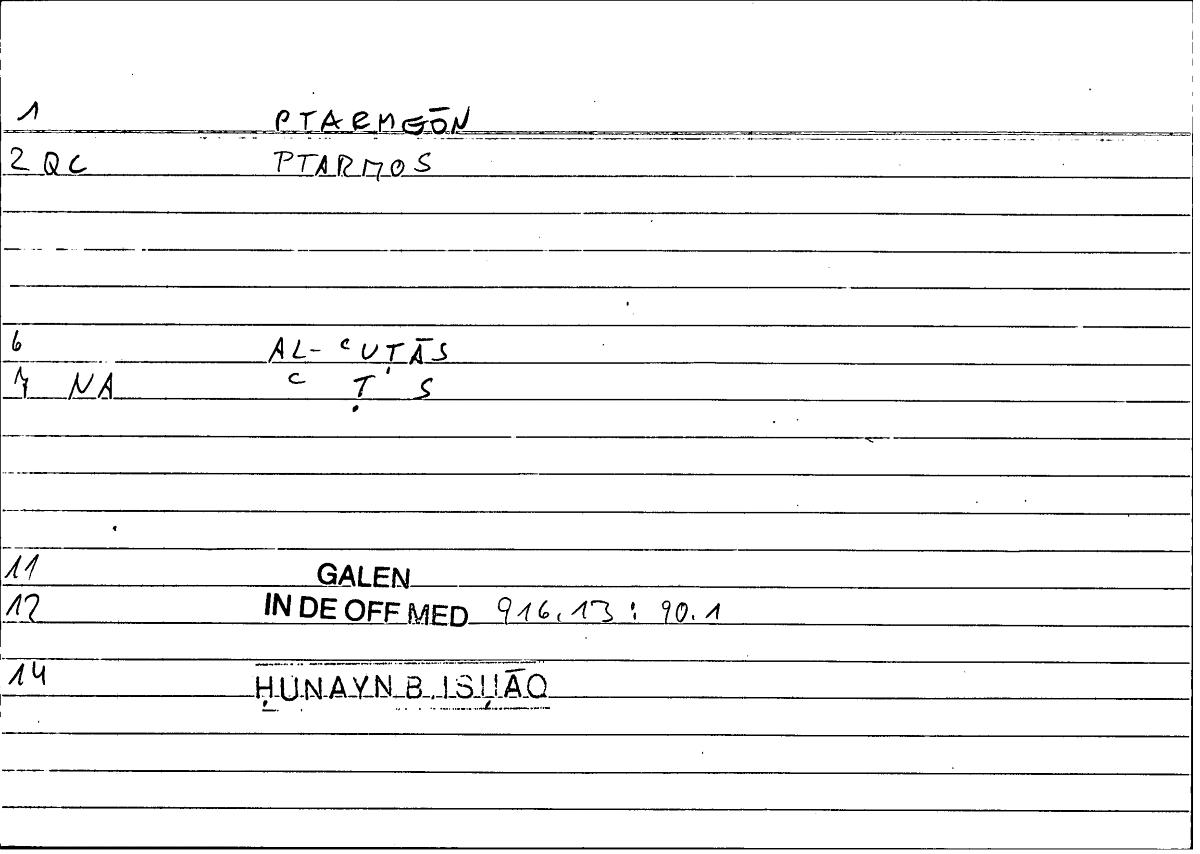 1 PTARMGŌN
2 QC PTARMOS
6 AL-ᶜUṬĀS
7 NA ᶜ Ṭ S
11 GALEN
12 IN DE OFF MED 916.13 : 90.1
14 ḤUNAYN B. ISḤĀQ